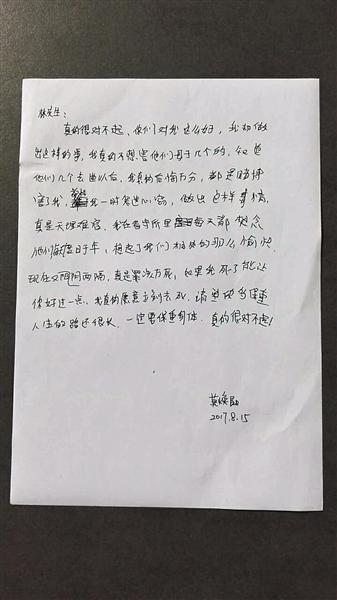 林先生:
真的很对不起、你们对我这么好,我却做
出这样的事,我真的不想害他们母子几个的,知道
他们几个去世以后,我真的后悔万分,都是赌博
害了我,我一时鬼迷心窍,做出这样事情,
真是天理难容,我在看守所里每天都想念
他们母子,想起了我们相处的那么愉快,
现在又阴阳两隔,真是罪该万死,如果我死了能让
你好过一点,我真的愿意立刻去死,请先生多保重
人生的路还很长,一定要保重身体,真的很对不起!
莫焕晶
2017.8.15